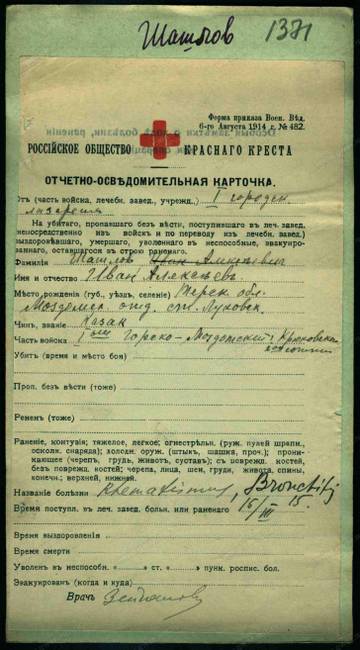 Шашлов 1371
Форма приказа Воен. Вѣд.
6-го Августа 1914 г. № 482.
РОССІЙСКОЕ ОБЩЕСТВО КРАСНАГО КРЕСТА
ОТЧЕТНО-ОСВѢДОМИТЕЛЬНАЯ КАРТОЧКА.
Отъ (часть войска, лечебн. завед., учрежд.) 1 городск.
лазарета
На убитаго, пропавшаго безъ вѣсти, поступившаго въ леч. завед.
(непосредственно изъ войскъ и по переводу изъ лечебн. завед.)
выздоровѣвшаго, умершаго, уволеннаго въ неспособные, эвакуиро-
ваннаго, оставшагося въ строю раненаго.
Фамилія Шашлов
Имя и отчество Иван Алексѣевъ
Мѣсто рожденія (губ., уѣзд., селеніе) Терск. обл.
Моздокск. отд. ст. Луковск.
Чинъ, званіе Казак
Часть войска 1ый Горско-Моздокскій
Убитъ (время и мѣсто боя)
Проп. безъ вѣсти (тоже)
Раненъ (тоже)
Раненіе, контузія: тяжелое, легкое; огнестрѣльн. (руж. пулей шрапн.,
осколк. снаряда); холодн. оруж. (штык., шашка, проч.); прони-
кающее (черепъ, грудь, животъ, суставъ); съ поврежд. костей,
безъ поврежд. костей; черепа, лица, шеи, груди, живота, спины,
конечн.; верхней, нижней.
Названіе болѣзни Rhematismus, Bronchitis
Время поступл. въ леч. завед. больн. или раненаго 16/III 15.
Время выздоровленія
Время смерти
Уволенъ въ неспособн. „ “ ст. „ “ пунк. роспис. бол.
Эвакуированъ (когда и куда)
Врачъ